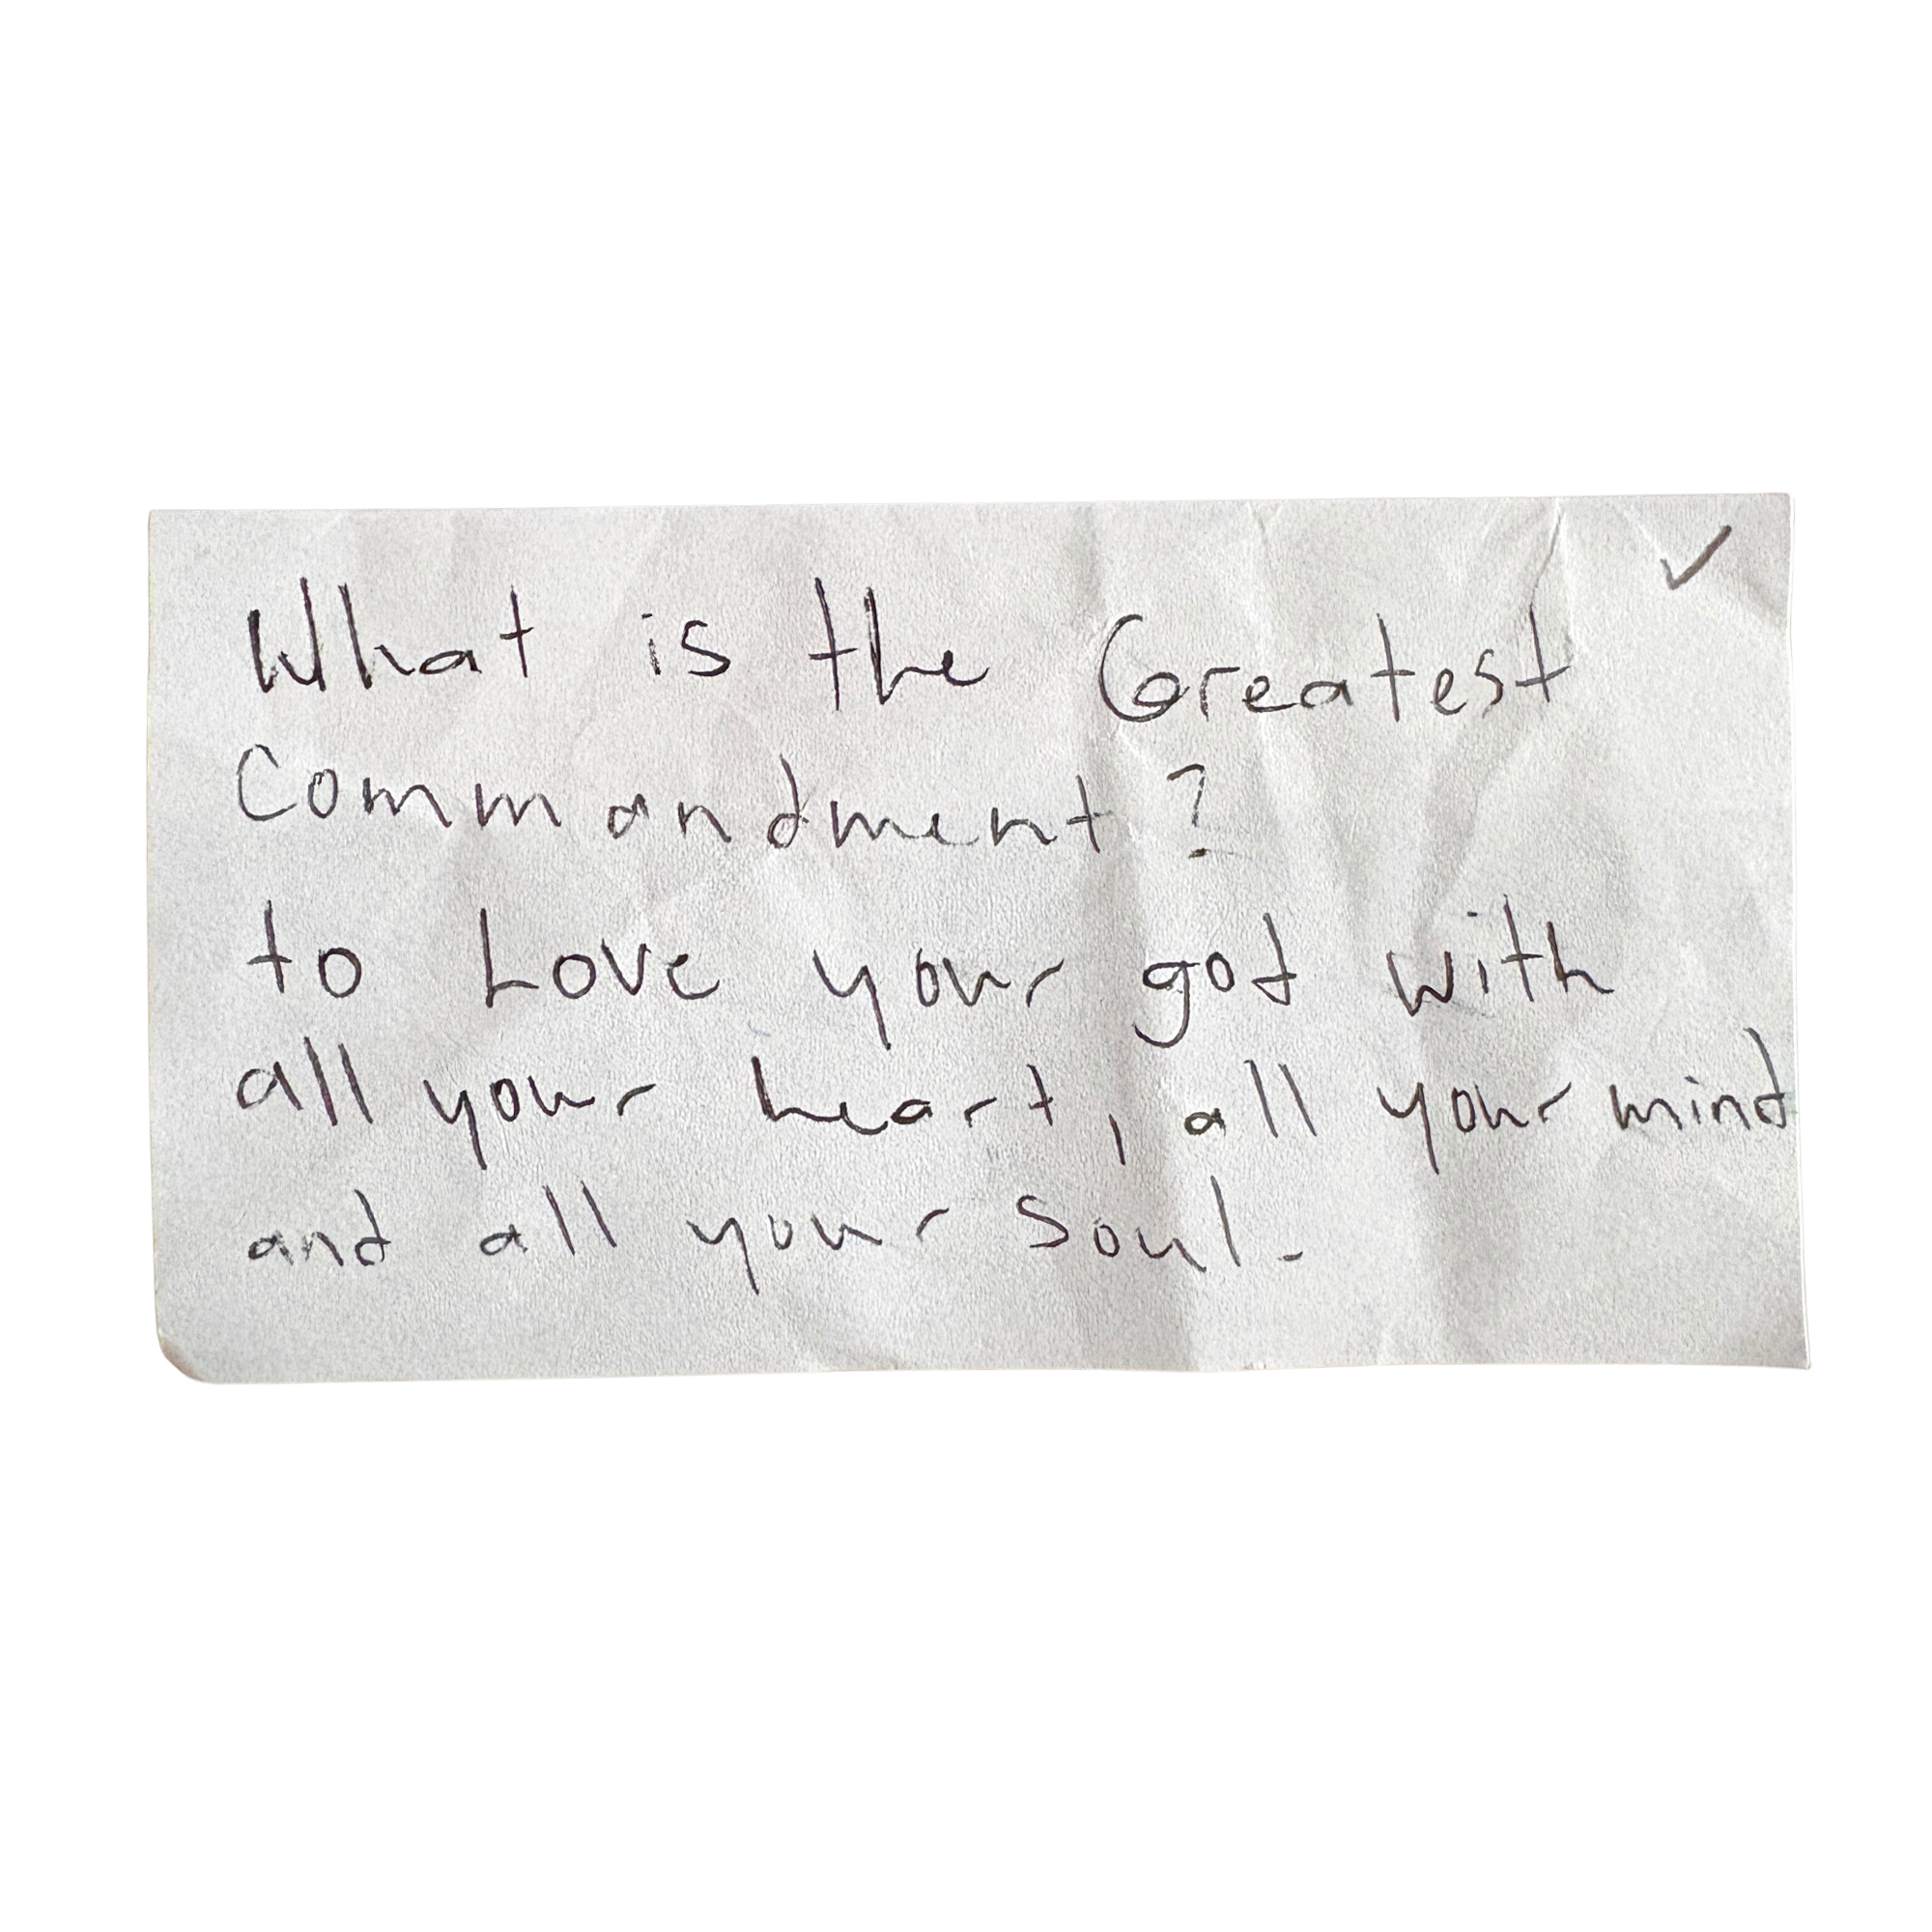 What is the Greatest
Commandment?
to Love your god with
all your heart, all your mind
and all your soul.